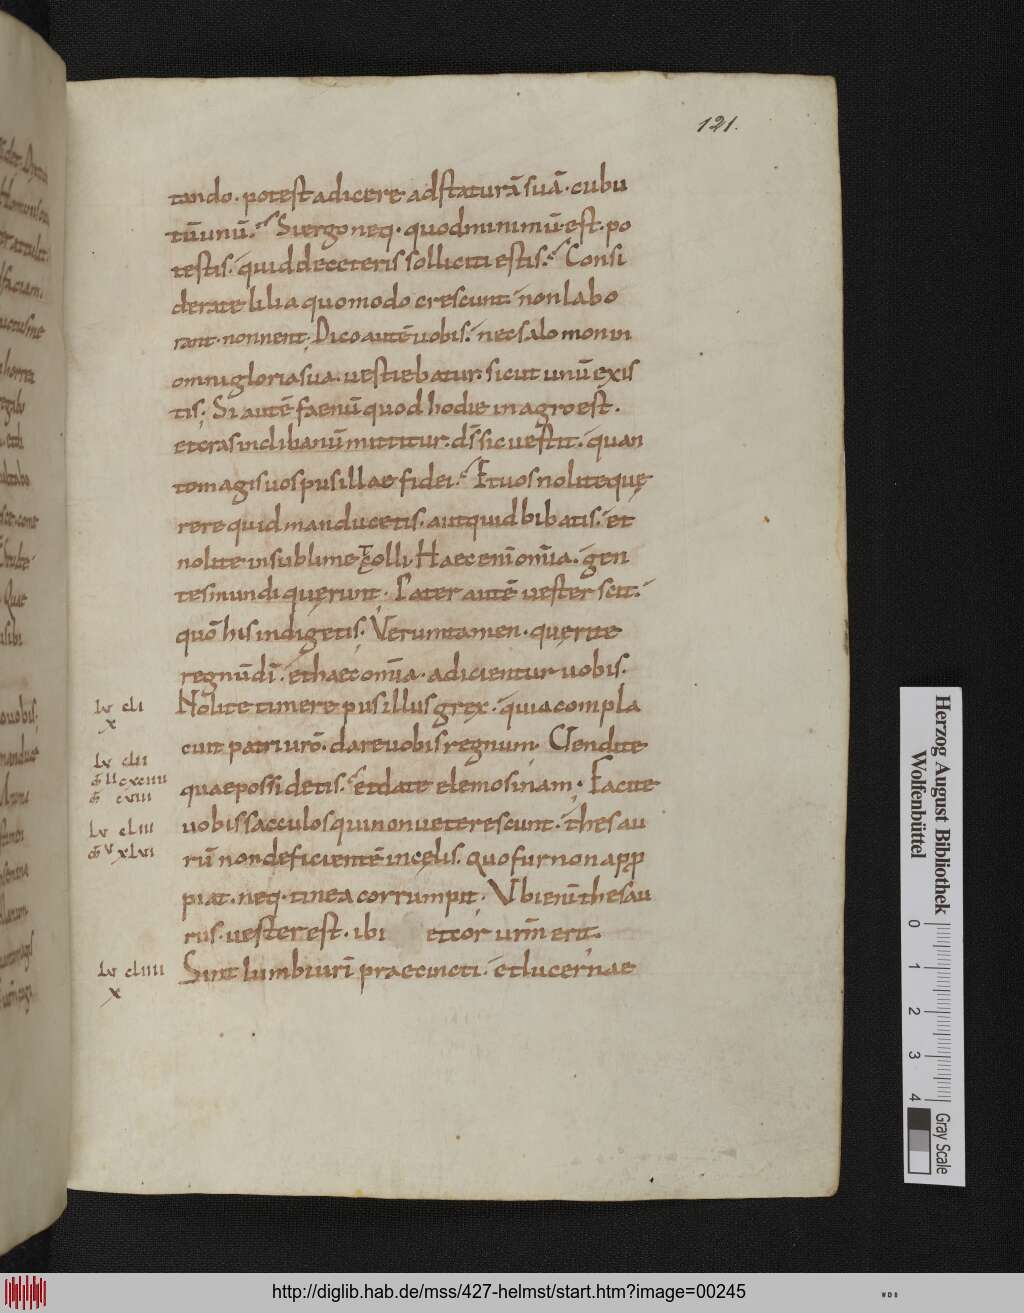 121.
tando. potest adicere ad staturā suā. cubu
tū unū. Si ergo neq· quod minimū est. po
testis. quid de ceteris solliciti estis. Consi
derate lilia quomodo crescunt. non labo
rant. non nent. Dico autē uobis. nec salomon in
omni gloria sua. uestiebatur. sicut unū ex is
tis. Si autē faenū quod hodie in agro est.
et cras in clibanū mittitur. ds̄ sic uestit. quan
to magis uos pusillae fidei. Et uos nolite quę
rere quid manducetis. aut quid bibatis. et
nolite in sublime tolli. Haec enī om̄ia. gen
tes mundi quęrunt. Pater autē uester scit.
quō his indigetis. Verumtamen. quęrite
regnū dī. et haec om̄ia. adicientur uobis.
Nolite timere pusillus grex. quia compla
cuit patri urō. dare uobis regnum. Uendite
quae possidetis. et date elemosinam. Facite
uobis sacculos qui non ueterescunt. thesau
rū non deficientē in cęlis. quo fur non app̱ro
piat. neq· tinea corrumpit. Vbi enī thesau
rus uester est. ibi et cor urm̄ erit.
Sint lumbi urī praecincti. et lucernae
lv cli
x
lv clii
lv cliii
lv cliiii
x
Herzog August Bibliothek
Wolfenbüttel
0 1 2 3 4
Gray Scale
http://diglib.hab.de/mss/427-helmst/start.htm?image=00245